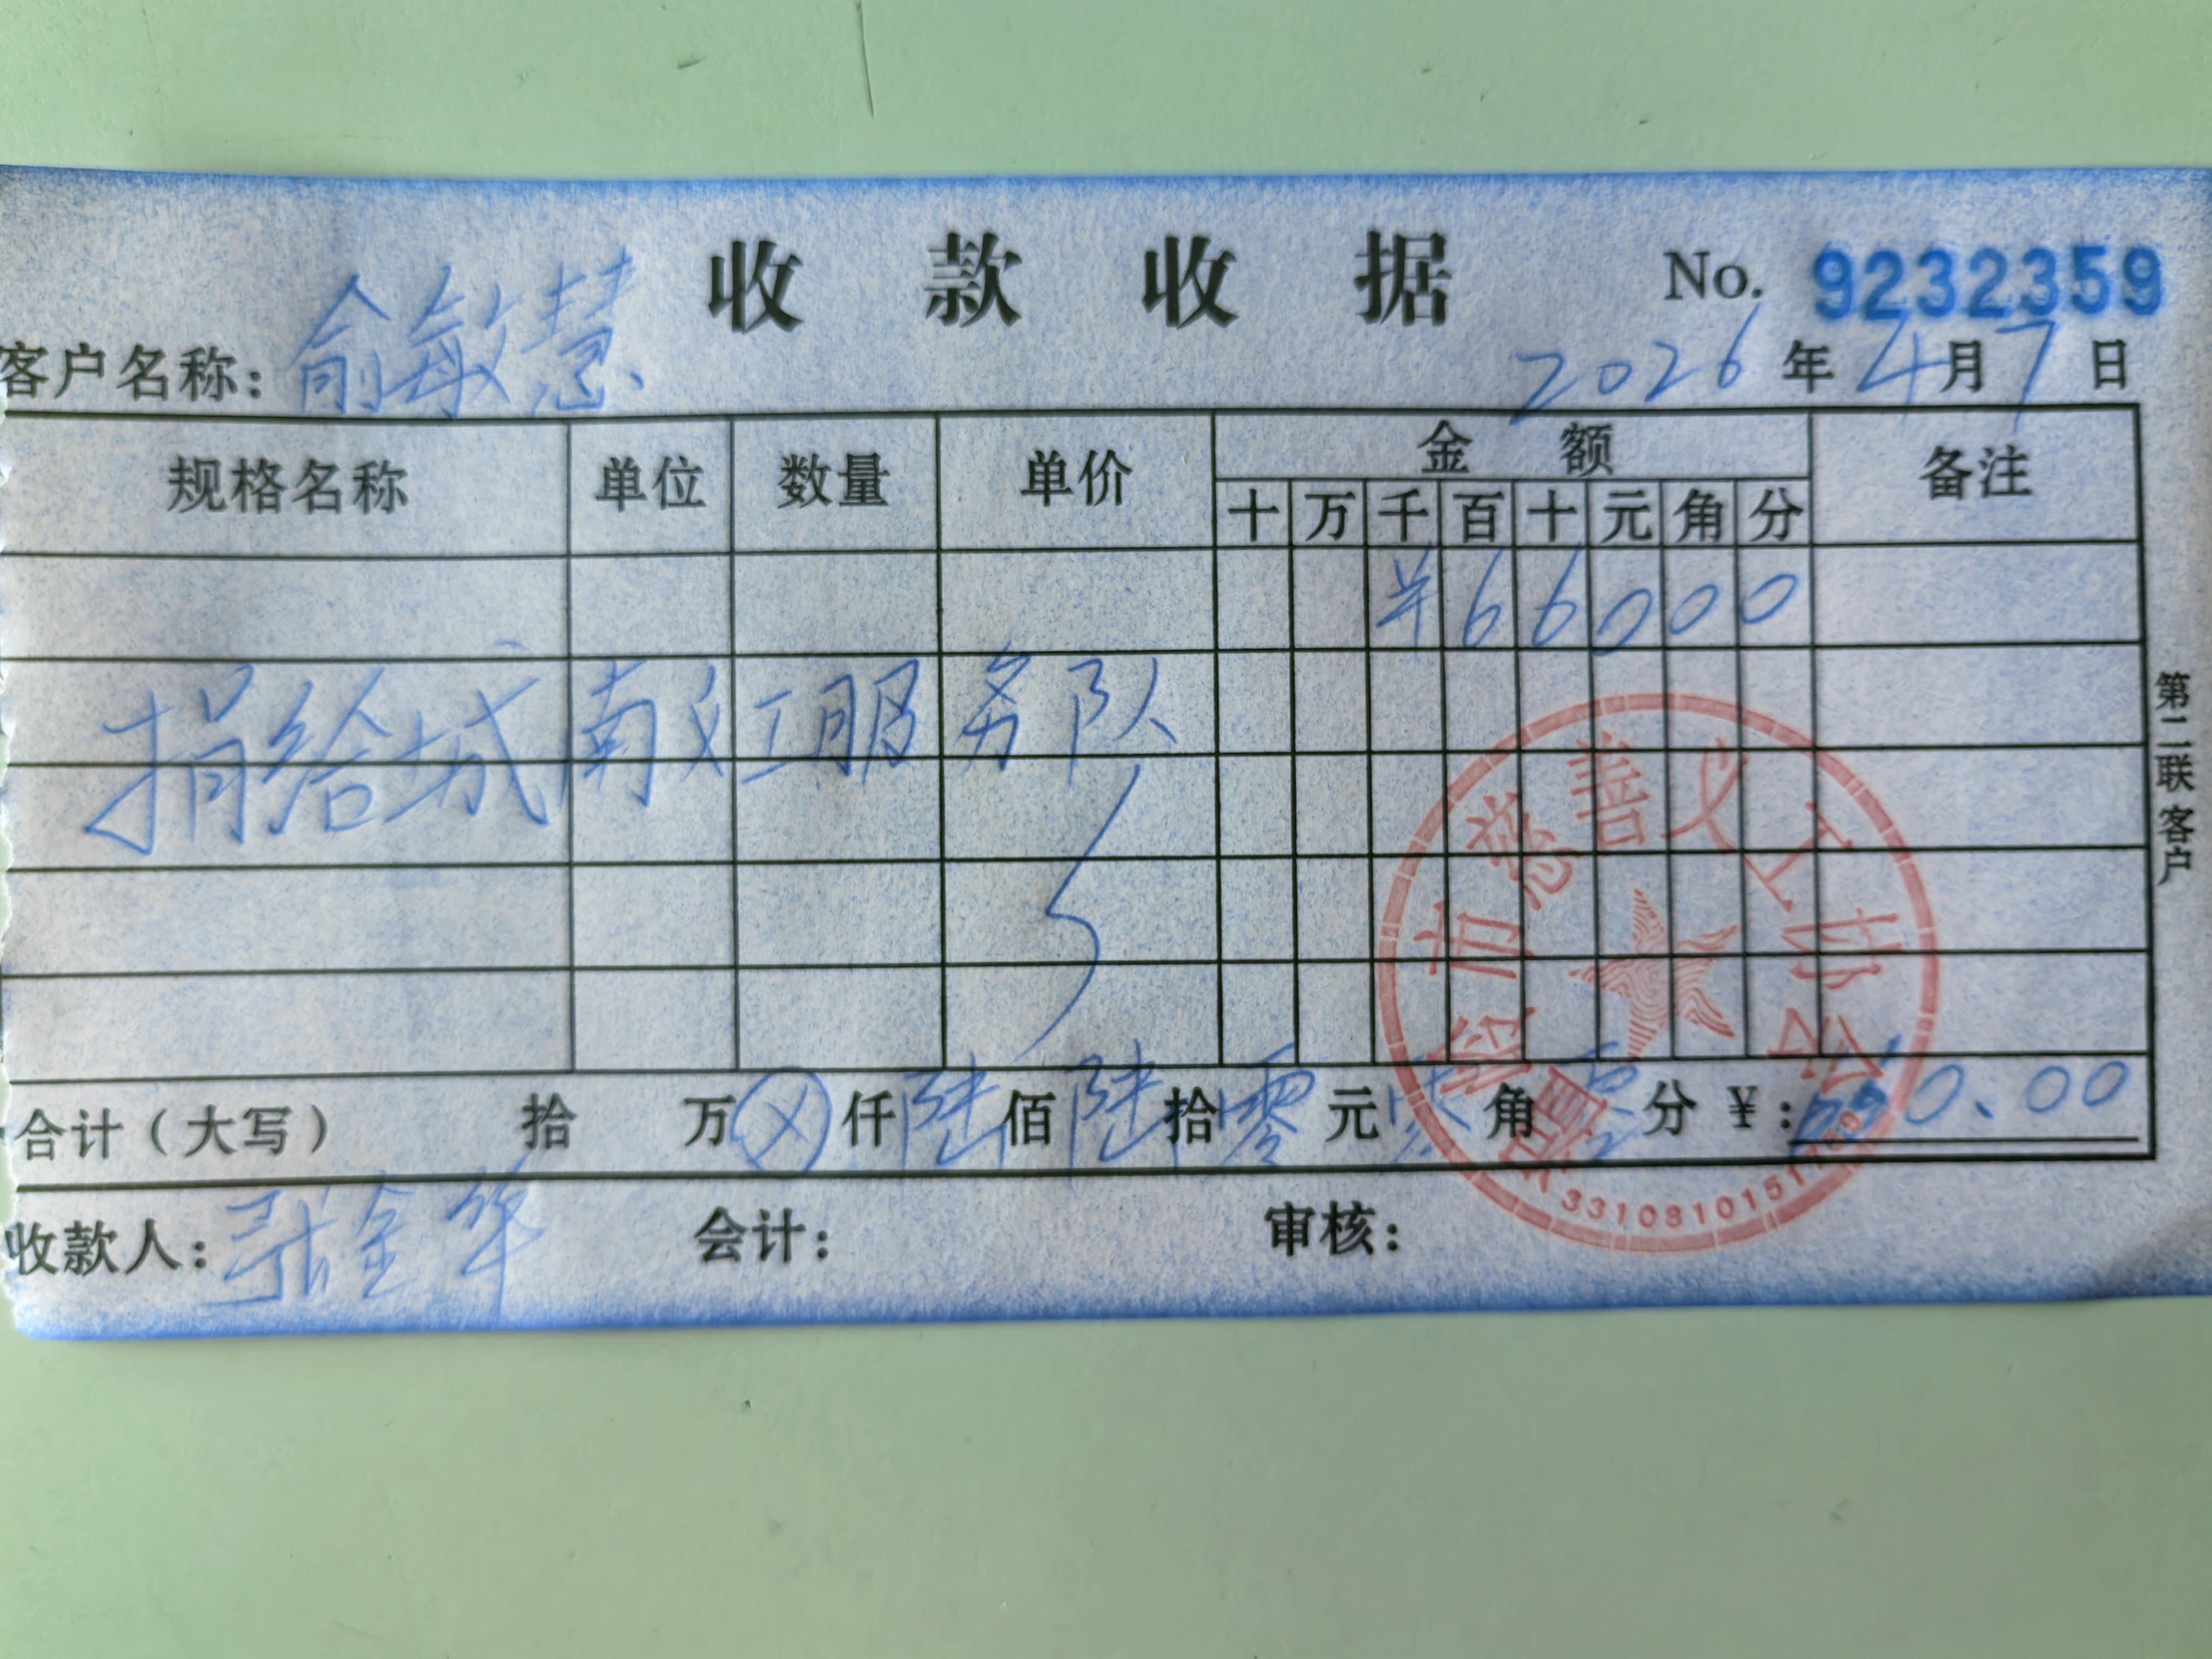 收款收据 No. 9232359
客户名称：俞敏慧 2026年4月7日
规格名称 单位 数量 单价 金额 备注
十 万 千 百 十 元 角 分
¥ 6 6 0 0 0
捐给城南义工服务队
合计（大写） 拾 万 ⊗ 仟 陆 佰 陆 拾 零 元 零 角 零 分 ¥：660.00
收款人：张金华 会计： 审核：
第二联 客户
温岭市慈善义工协会